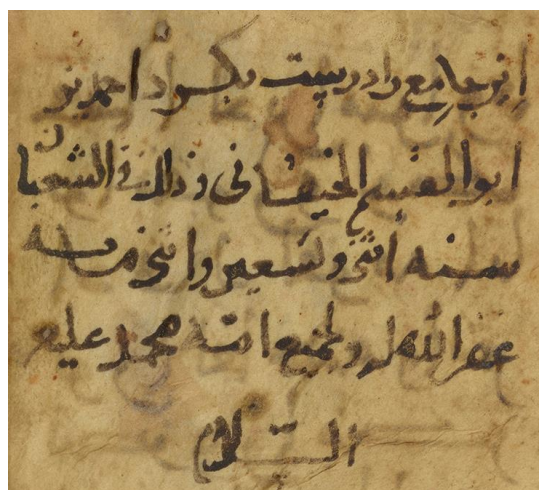 اين جامع را درست بكرد احمد بن
ابو القسم الخيقانى وذلك فى الشعبان
سنه اثنى وتسعين واثنى مايه
غفر الله له ولجميع امة محمد عليه
السلام